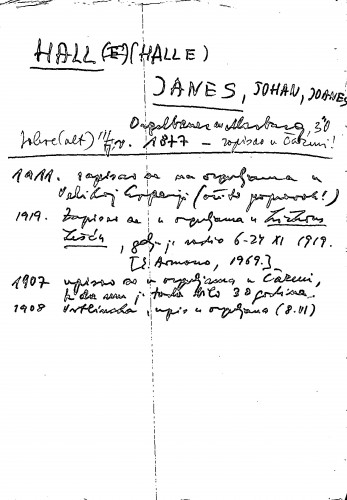 HALL(E)(HALLE)
JANES, JOHAN, JOANES
Orgelbauer Marburg, 30
Jahre(alt) 1877 - zapisao u Čazmi!
1911. zapisao se na orguljama u
Velikoj (ovdje popravak!)
1919. Zapisao se u orguljama u
, gdje je radio 6-24 XI 1919.
[Š. Armano, 1969.]
1907 upisao se u orguljama u Čazmi,
i da mu je tada bilo 30 godina.
1908 Vrtlinska, upis u orguljama (8.VI)